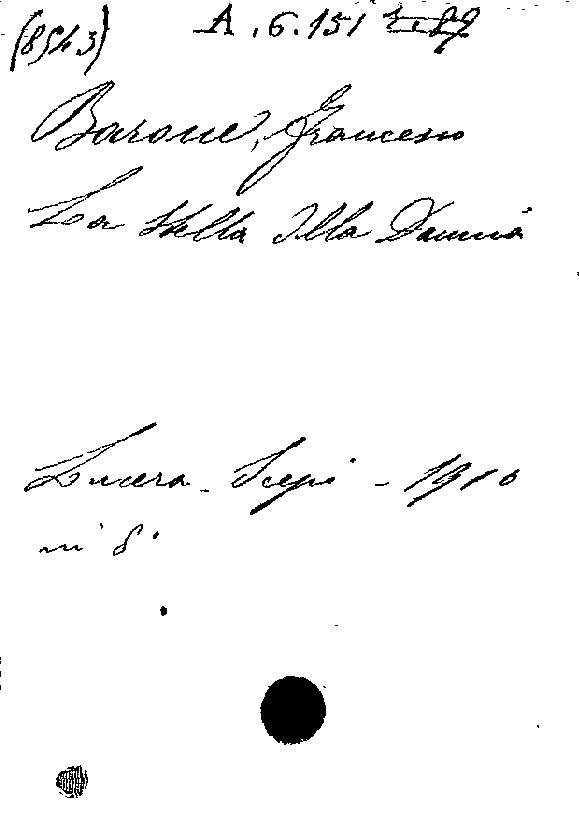 (8543) A.6.151
Barone, Francesco
La Stella della Daunia
Lucera - Scepi - 1910
in 8°